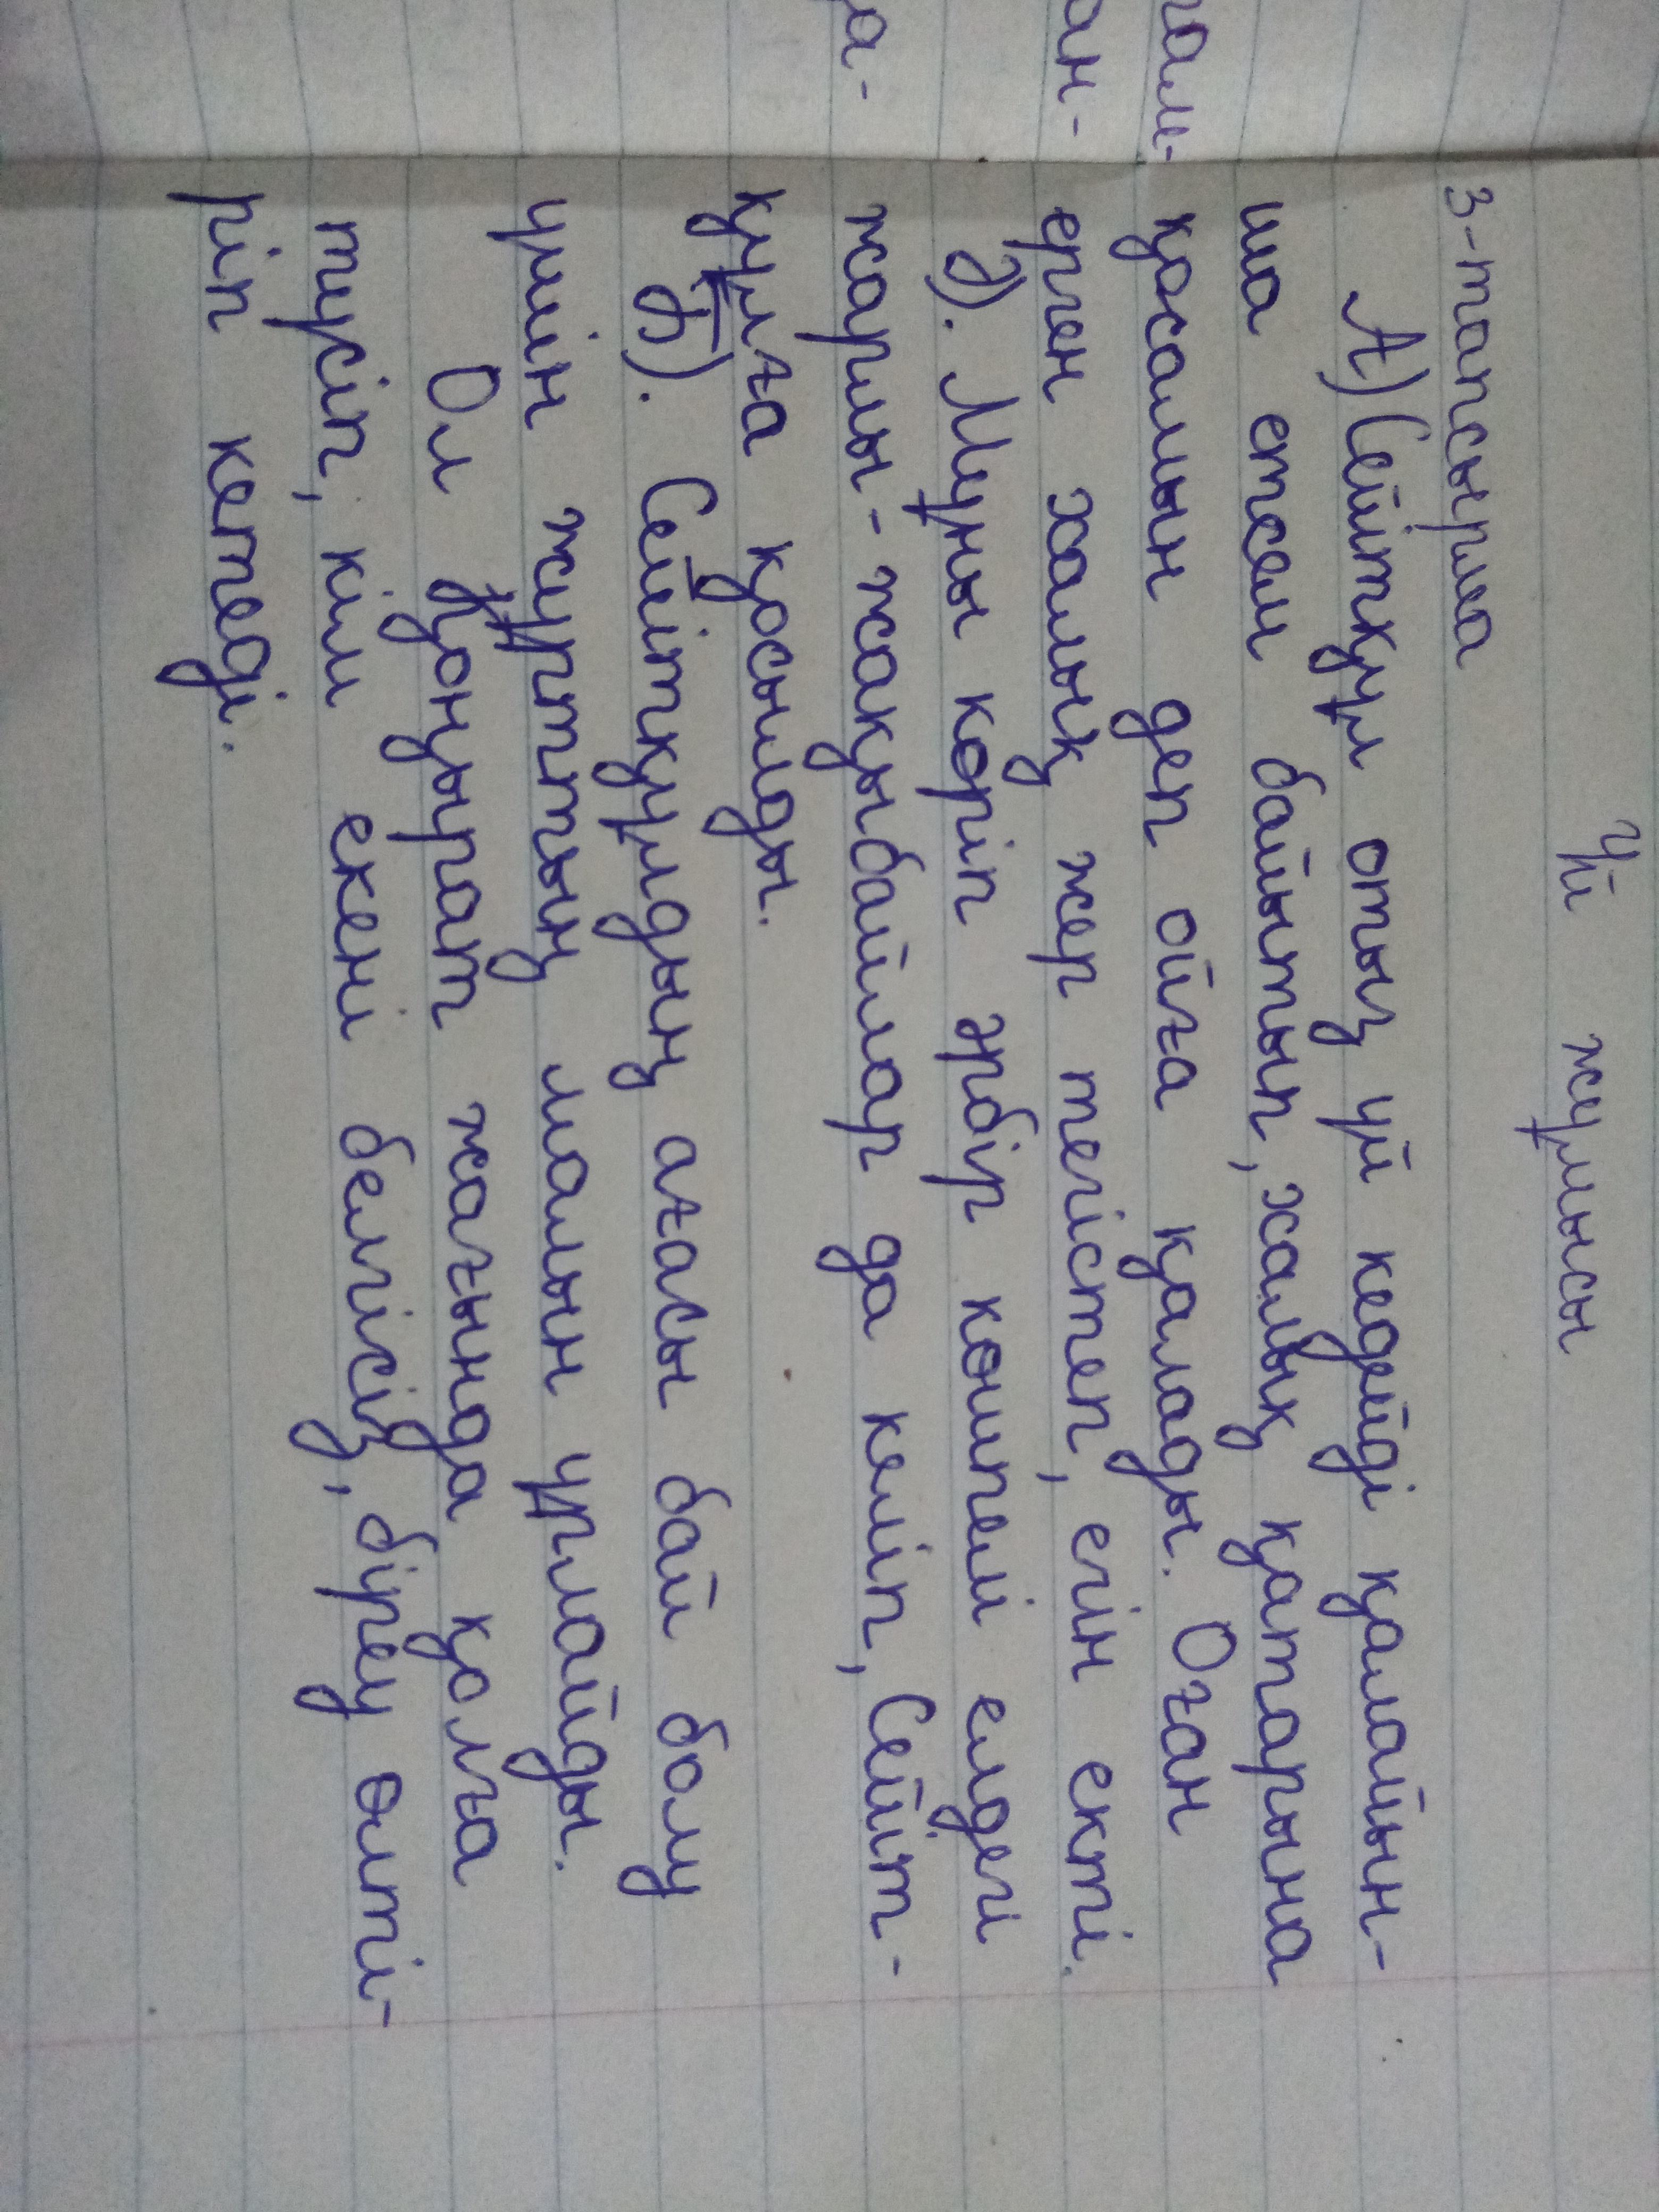 Үй жұмысы
3-тапсырма
А) Сейітқұл отыз үй кедейді қалайын-
ша етсем байытып, халық қатарына
қосамын деп ойға қалады. Оған
ерген халық жер тегістеп, егін екті.
Ә). Мұны көріп әрбір көшпелі елдегі
жарлы-жақыбайлар да келіп, Сейіт-
құлға қосылды.
Б). Сейітқұлдың ағасы бай болу
үшін жұрттың малын ұрлайды.
Ол қоңырат жағында қолға
түсіп, кім екені белгісіз, біреу өлті-
ріп кетеді.
ғам-
ан-
а-